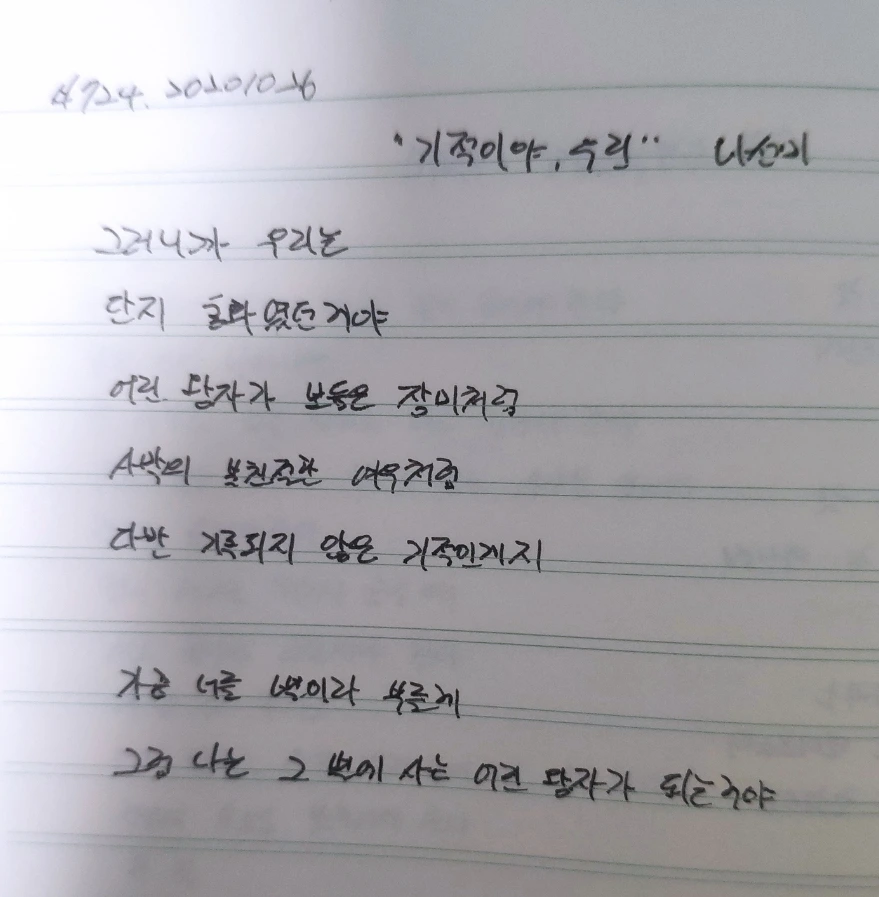 #724. 20201026
"기적이야, 우리" 나선미
그러니까 우리는
단지 동화였던거야
어린 왕자가 보듬은 장미처럼
사막의 불친절한 여우처럼
다만 기록되지 않은 기적인게지
가끔 너를 별이라 부를게
그럼 나는 그 별에 사는 어린 왕자가 되는거야